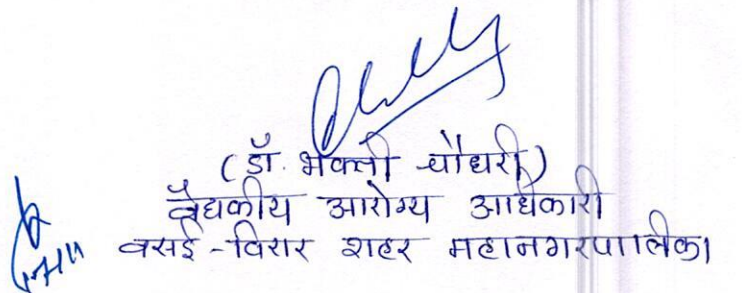 (डॉ. भक्ती चौधरी)
वैद्यकीय आरोग्य अधिकारी
वसई-विरार शहर महानगरपालिका